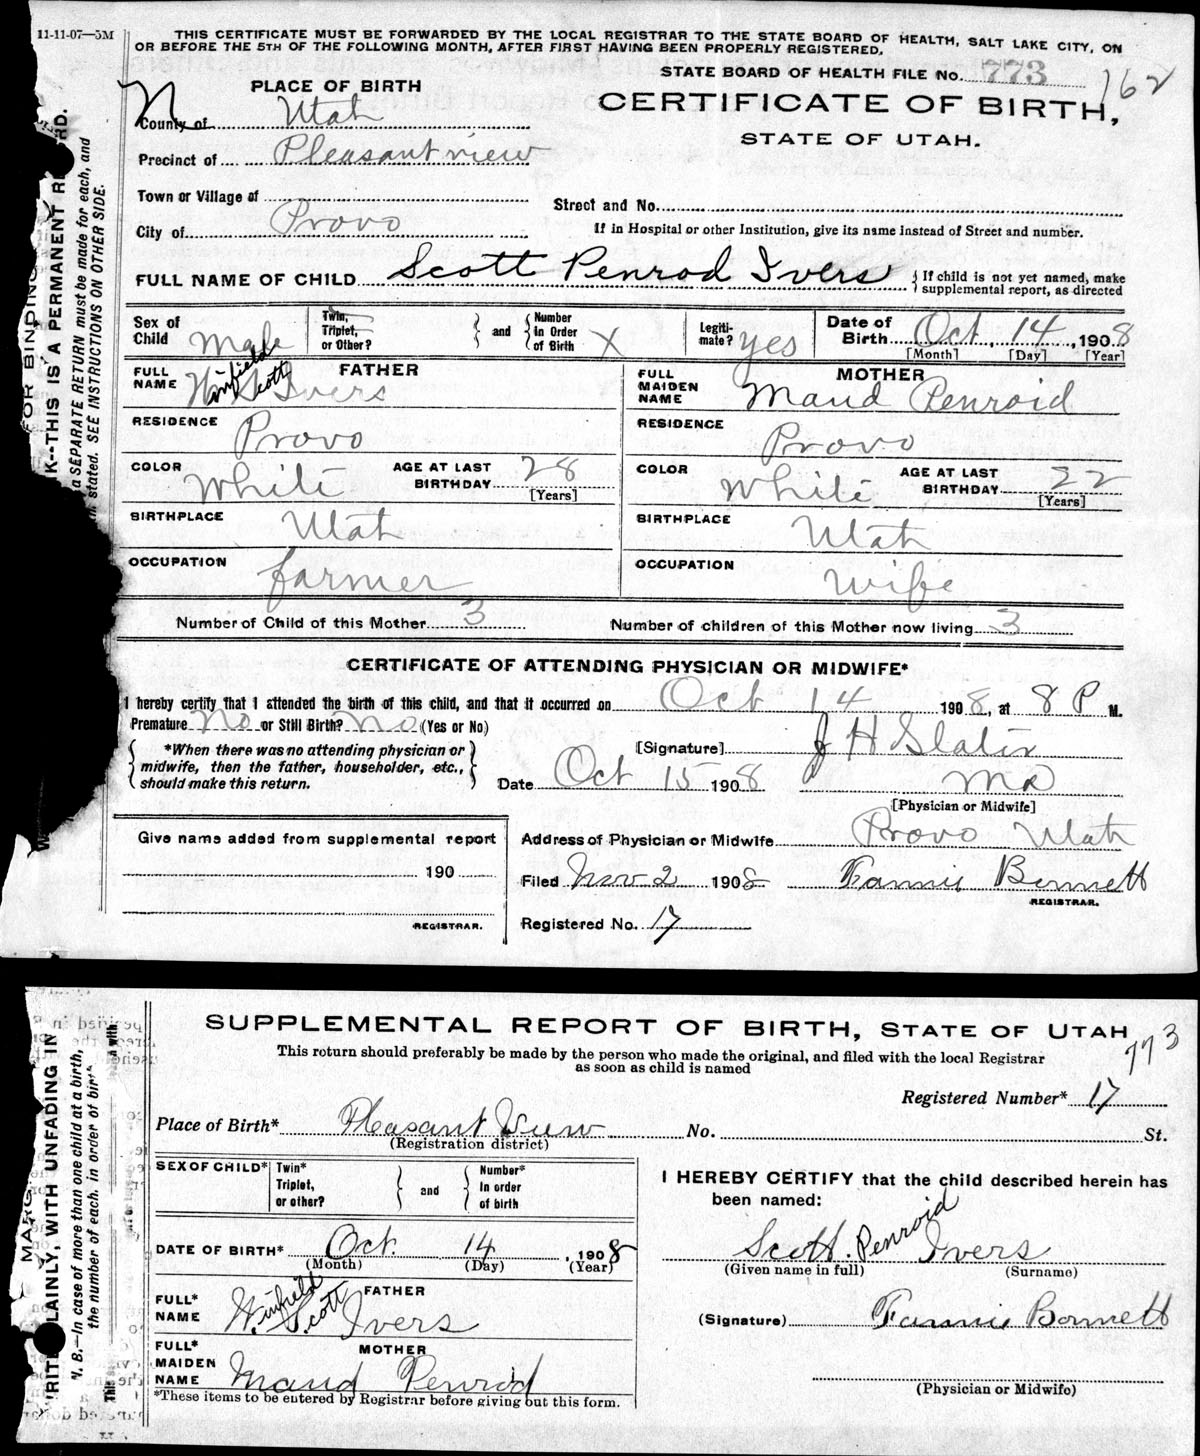 11-11-07—5M
THIS CERTIFICATE MUST BE FORWARDED BY THE LOCAL REGISTRAR TO THE STATE BOARD OF HEALTH, SALT LAKE CITY, ON
OR BEFORE THE 5TH OF THE FOLLOWING MONTH, AFTER FIRST HAVING BEEN PROPERLY REGISTERED.
STATE BOARD OF HEALTH FILE No. 773 162
PLACE OF BIRTH
CERTIFICATE OF BIRTH,
STATE OF UTAH.
N
County of Utah
Precinct of Pleasantview
Town or Village of
City of Provo
Street and No.
If in Hospital or other Institution, give its name instead of Street and number.
FULL NAME OF CHILD Scott Penrod Ivers {If child is not yet named, make
supplemental report, as directed
Sex of Child Male
Twin, Triplet, or Other? } and { Number in Order of Birth X
Legitimate? yes
Date of Birth Oct. 14, 1908
[Month] [Day] [Year]
FATHER
FULL NAME Winfield Scott Ivers
RESIDENCE Provo
COLOR White AGE AT LAST BIRTHDAY 28 [Years]
BIRTHPLACE Utah
OCCUPATION farmer
MOTHER
FULL MAIDEN NAME Maud Penroid
RESIDENCE Provo
COLOR White AGE AT LAST BIRTHDAY 22 [Years]
BIRTHPLACE Utah
OCCUPATION Wife
Number of Child of this Mother 3 Number of children of this Mother now living 3
CERTIFICATE OF ATTENDING PHYSICIAN OR MIDWIFE*
I hereby certify that I attended the birth of this child, and that it occurred on Oct 14 1908, at 8 P M.
Premature No or Still Birth? No (Yes or No)
{ *When there was no attending physician or
midwife, then the father, householder, etc.,
should make this return. }
[Signature] J H Slater
Date Oct 15 1908 MD
[Physician or Midwife]
Give name added from supplemental report
190
REGISTRAR.
Address of Physician or Midwife Provo Utah
Filed Nov 2 1908 Fannie Bonnett
REGISTRAR.
Registered No. 17
FOR BINDING
K--THIS IS A PERMANENT
a SEPARATE RETURN must be made for each, and
stated. SEE INSTRUCTIONS ON OTHER SIDE.
SUPPLEMENTAL REPORT OF BIRTH, STATE OF UTAH
773
This return should preferably be made by the person who made the original, and filed with the local Registrar
as soon as child is named
Registered Number* 17
Place of Birth* Pleasant View No. St.
(Registration district)
SEX OF CHILD*
Twin* Triplet, or other? } and { Number* In order of birth
DATE OF BIRTH* Oct. 14, 1908
(Month) (Day) (Year)
FATHER
FULL* NAME Winfield Scott Ivers
MOTHER
FULL* MAIDEN NAME Maud Penrod
*These items to be entered by Registrar before giving out this form.
I HEREBY CERTIFY that the child described herein has
been named:
Scott Penroid Ivers
(Given name in full) (Surname)
(Signature) Fannie Bonnett
(Physician or Midwife)
MARG
LAINLY, WITH UNFADING IN
N. B.—In case of more than one child at a birth,
the number of each, in order of birth